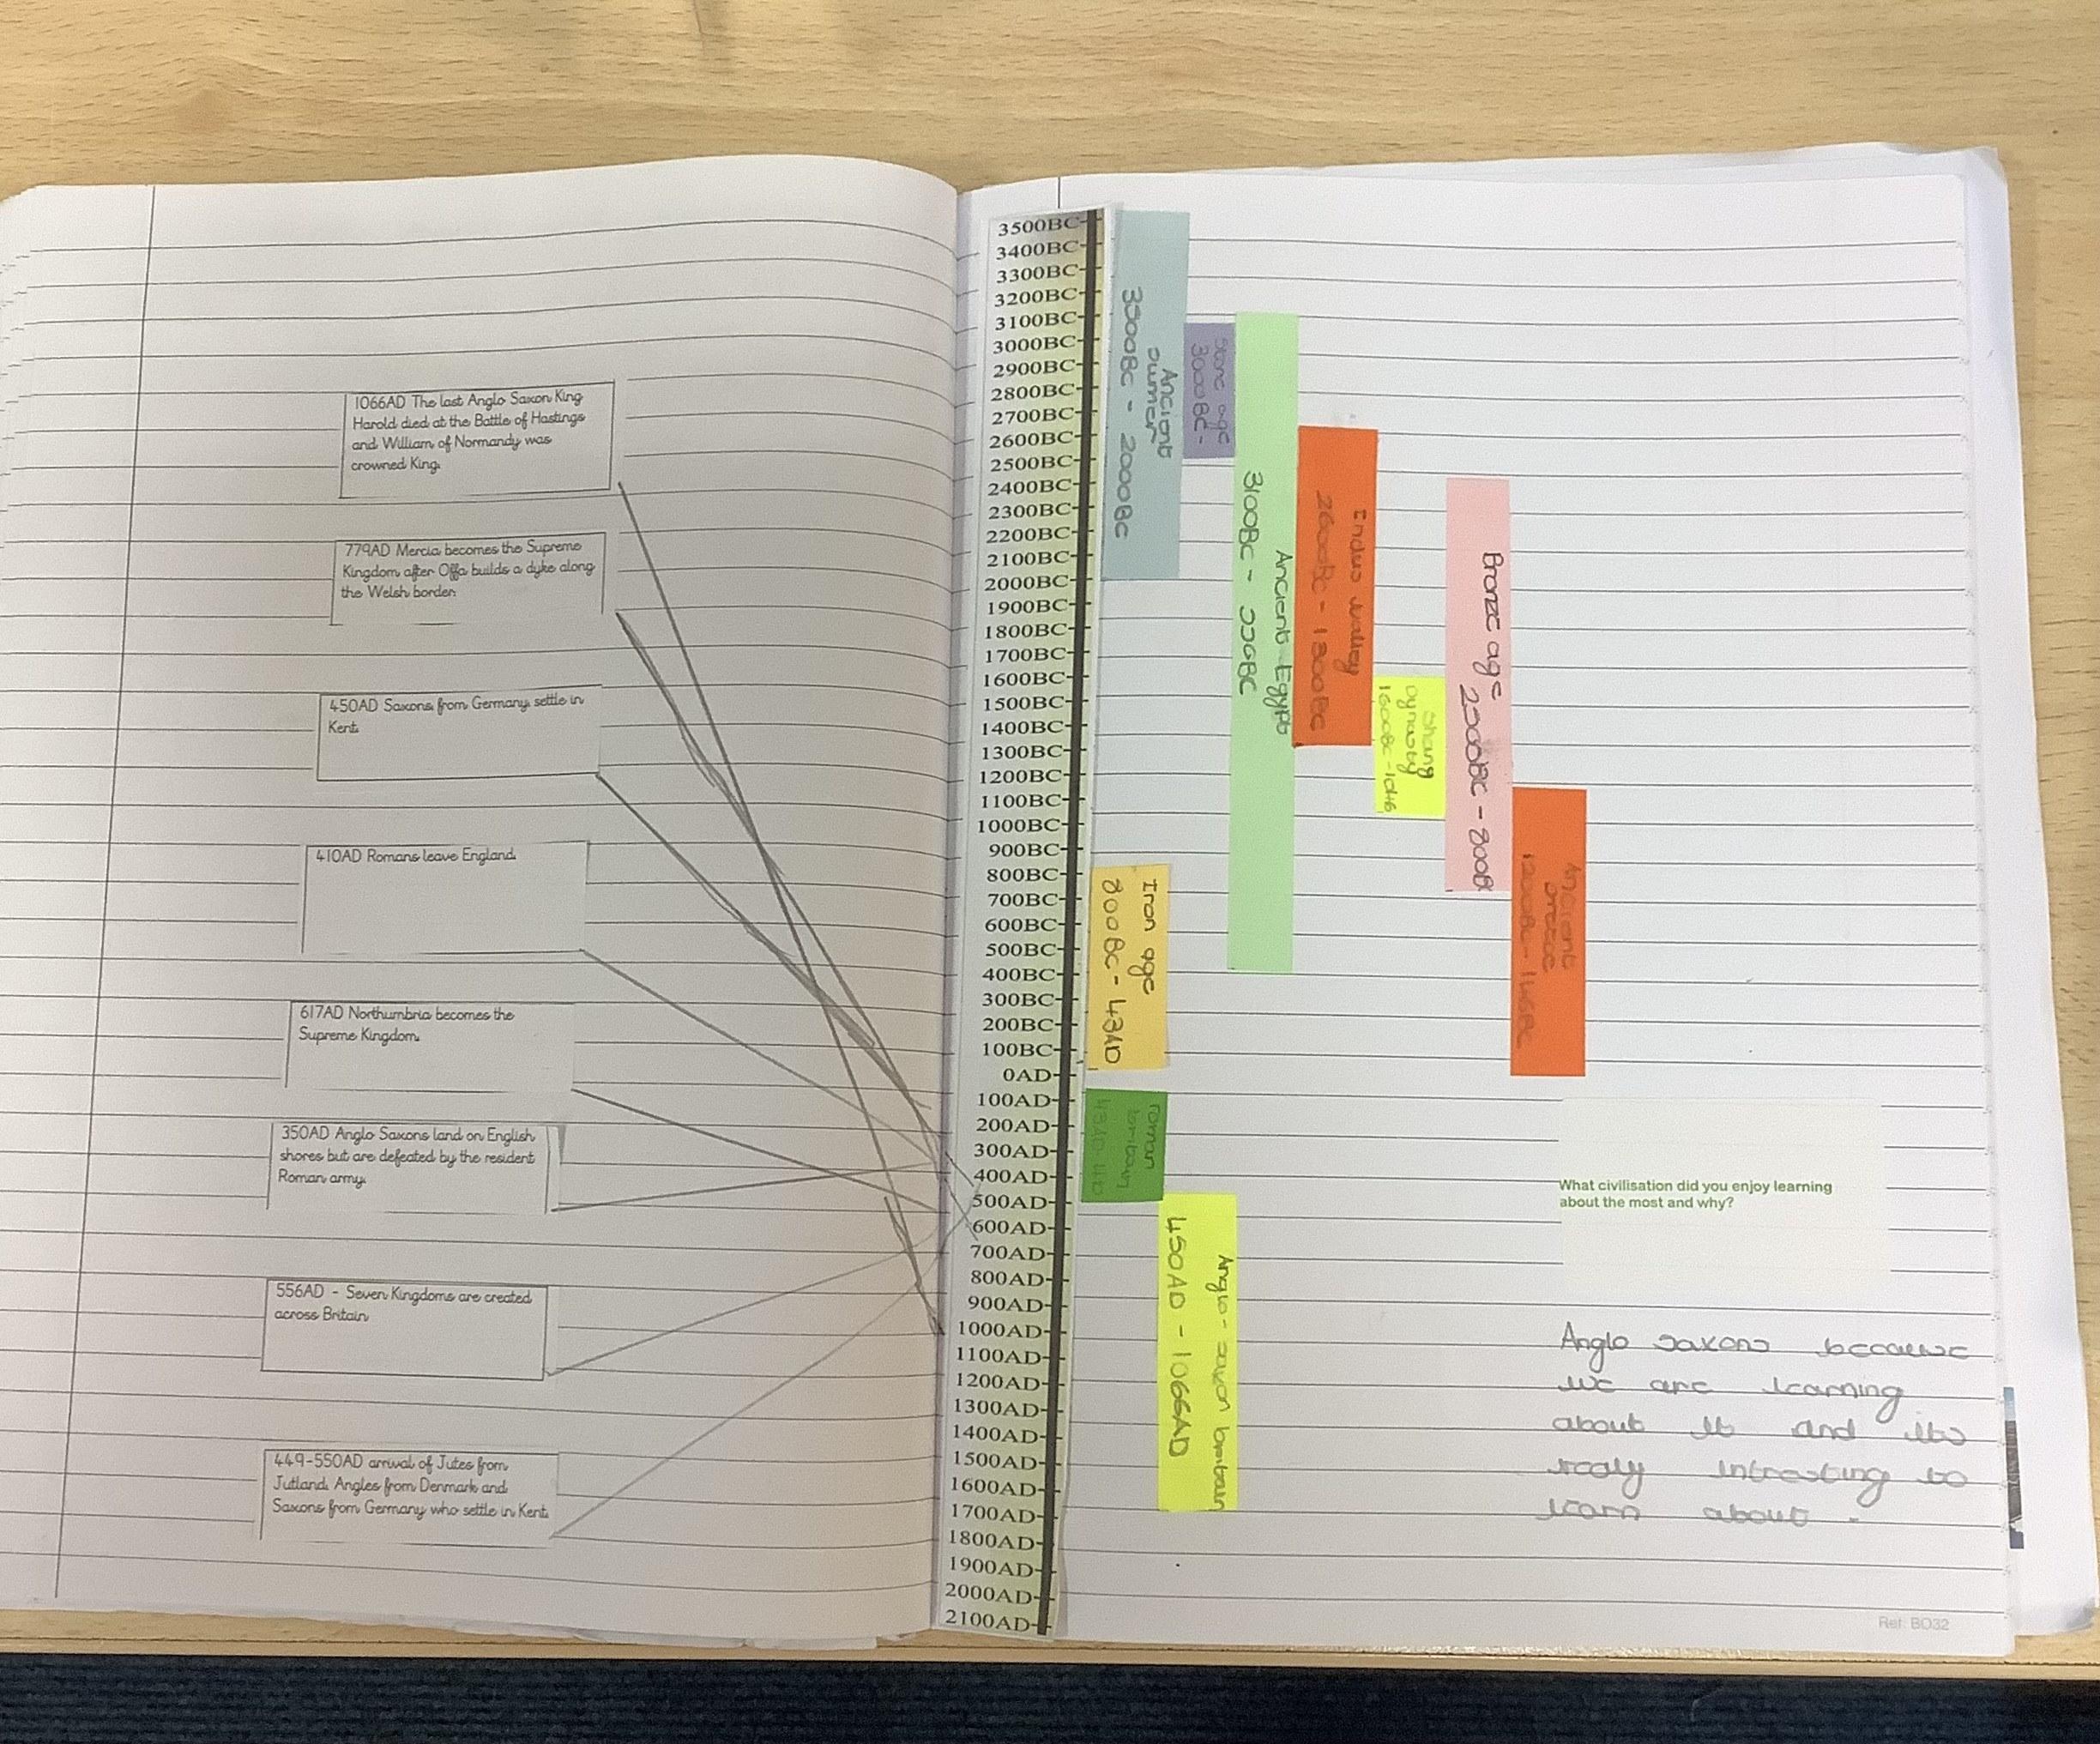 1066AD The last Anglo Saxon King
Harold died at the Battle of Hastings
and William of Normandy was
crowned King.
779AD Mercia becomes the Supreme
Kingdom after Offa builds a dyke along
the Welsh border.
450AD Saxons from Germany settle in
Kent.
410AD Romans leave England.
617AD Northumbria becomes the
Supreme Kingdom.
350AD Anglo Saxons land on English
shores but are defeated by the resident
Roman army.
556AD - Seven Kingdoms are created
across Britain
449-550AD arrival of Jutes from
Jutland, Angles from Denmark and
Saxons from Germany who settle in Kent.
3500BC
3400BC
3300BC
3200BC
3100BC
3000BC
2900BC
2800BC
2700BC
2600BC
2500BC
2400BC
2300BC
2200BC
2100BC
2000BC
1900BC
1800BC
1700BC
1600BC
1500BC
1400BC
1300BC
1200BC
1100BC
1000BC
900BC
800BC
700BC
600BC
500BC
400BC
300BC
200BC
100BC
0AD
100AD
200AD
300AD
400AD
500AD
600AD
700AD
800AD
900AD
1000AD
1100AD
1200AD
1300AD
1400AD
1500AD
1600AD
1700AD
1800AD
1900AD
2000AD
2100AD
Ancient
sumer
3500BC - 2000BC
stone age
3000BC -
Ancient Egypt
3100BC -
Indus valley
2600BC -
shang
Dynasty
1600BC - 1046
Bronze age
- 800B
Ancient
1200BC - 146BC
Iron age
800BC - 43AD
roman
43AD
Anglo - saxon
450AD - 1066AD
What civilisation did you enjoy learning
about the most and why?
Anglo saxons because
we are learning
about it and its
realy intresting to
learn about .
Ref: BO32